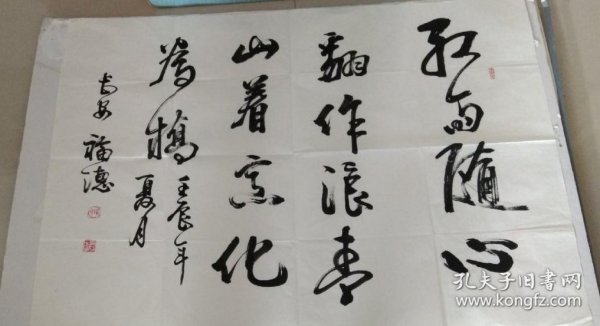 红雨随心
翻作浪青
山着意化
为桥 壬辰年
夏月
长安 福德
孔夫子旧书网
www.kongfz.com